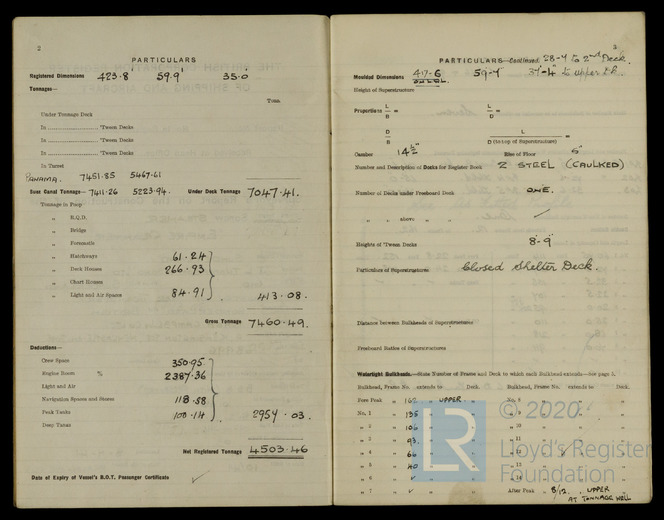 2
PARTICULARS
Registered Dimensions 423.8 59.9 35.0
Tonnages— Tons
Under Tonnage Deck
In 'Tween Decks
In 'Tween Decks
In 'Tween Decks
In Turret
PANAMA. 7451.85 5467.61
Suez Canal Tonnage— 7411.26 5223.94. Under Deck Tonnage 7047.41.
Tonnage in Poop
" R.Q.D.
" Bridge
" Forecastle
" Hatchways 61.24
" Deck Houses 266.93
" Chart Houses
" Light and Air Spaces 84.91 413.08.
Gross Tonnage 7460.49.
Deductions—
Crew Space 350.95
Engine Room % 2387.36
Light and Air
Navigation Spaces and Stores 118.58
Peak Tanks 100.14 2957.03.
Deep Tanks
Net Registered Tonnage 4503.46
Date of Expiry of Vessel's B.O.T. Passenger Certificate ✓
3
PARTICULARS—Continued. 28-4 to 2nd Deck.
Moulded Dimensions 417-6 59-4 37-4" to upper dk.
Height of Superstructure
Proportions L/D = L/D =
B/D = L/D (to top of Superstructure) =
Camber 14½" Rise of Floor 5"
Number and Description of Decks for Register Book 2 STEEL (CAULKED)
Number of Decks under Freeboard Deck ONE.
" " above " " ✓
Heights of 'Tween Decks 8'-9"
Particulars of Superstructures Closed Shelter Deck.
Distance between Bulkheads of Superstructures
Freeboard Ratios of Superstructures
Watertight Bulkheads.—State Number of Frame and Deck to which each Bulkhead extends—See page 5.
Bulkhead, Frame No. extends to Deck. Bulkhead, Frame No. extends to Deck.
Fore Peak " 162 UPPER " No. 8 " " "
No. 1 " 135 " " 9
" 2 " 106 " " 10
" 3 " 93. " " 11
" 4 " 66 " " 12
" 5 " 40 " " 13
" 6 " ✓ " " 14
" 7 " ✓ " After Peak " 8/12. " UPPER
AT TONNAGE WELL
© 2020
LR
Lloyd's Register
Foundation